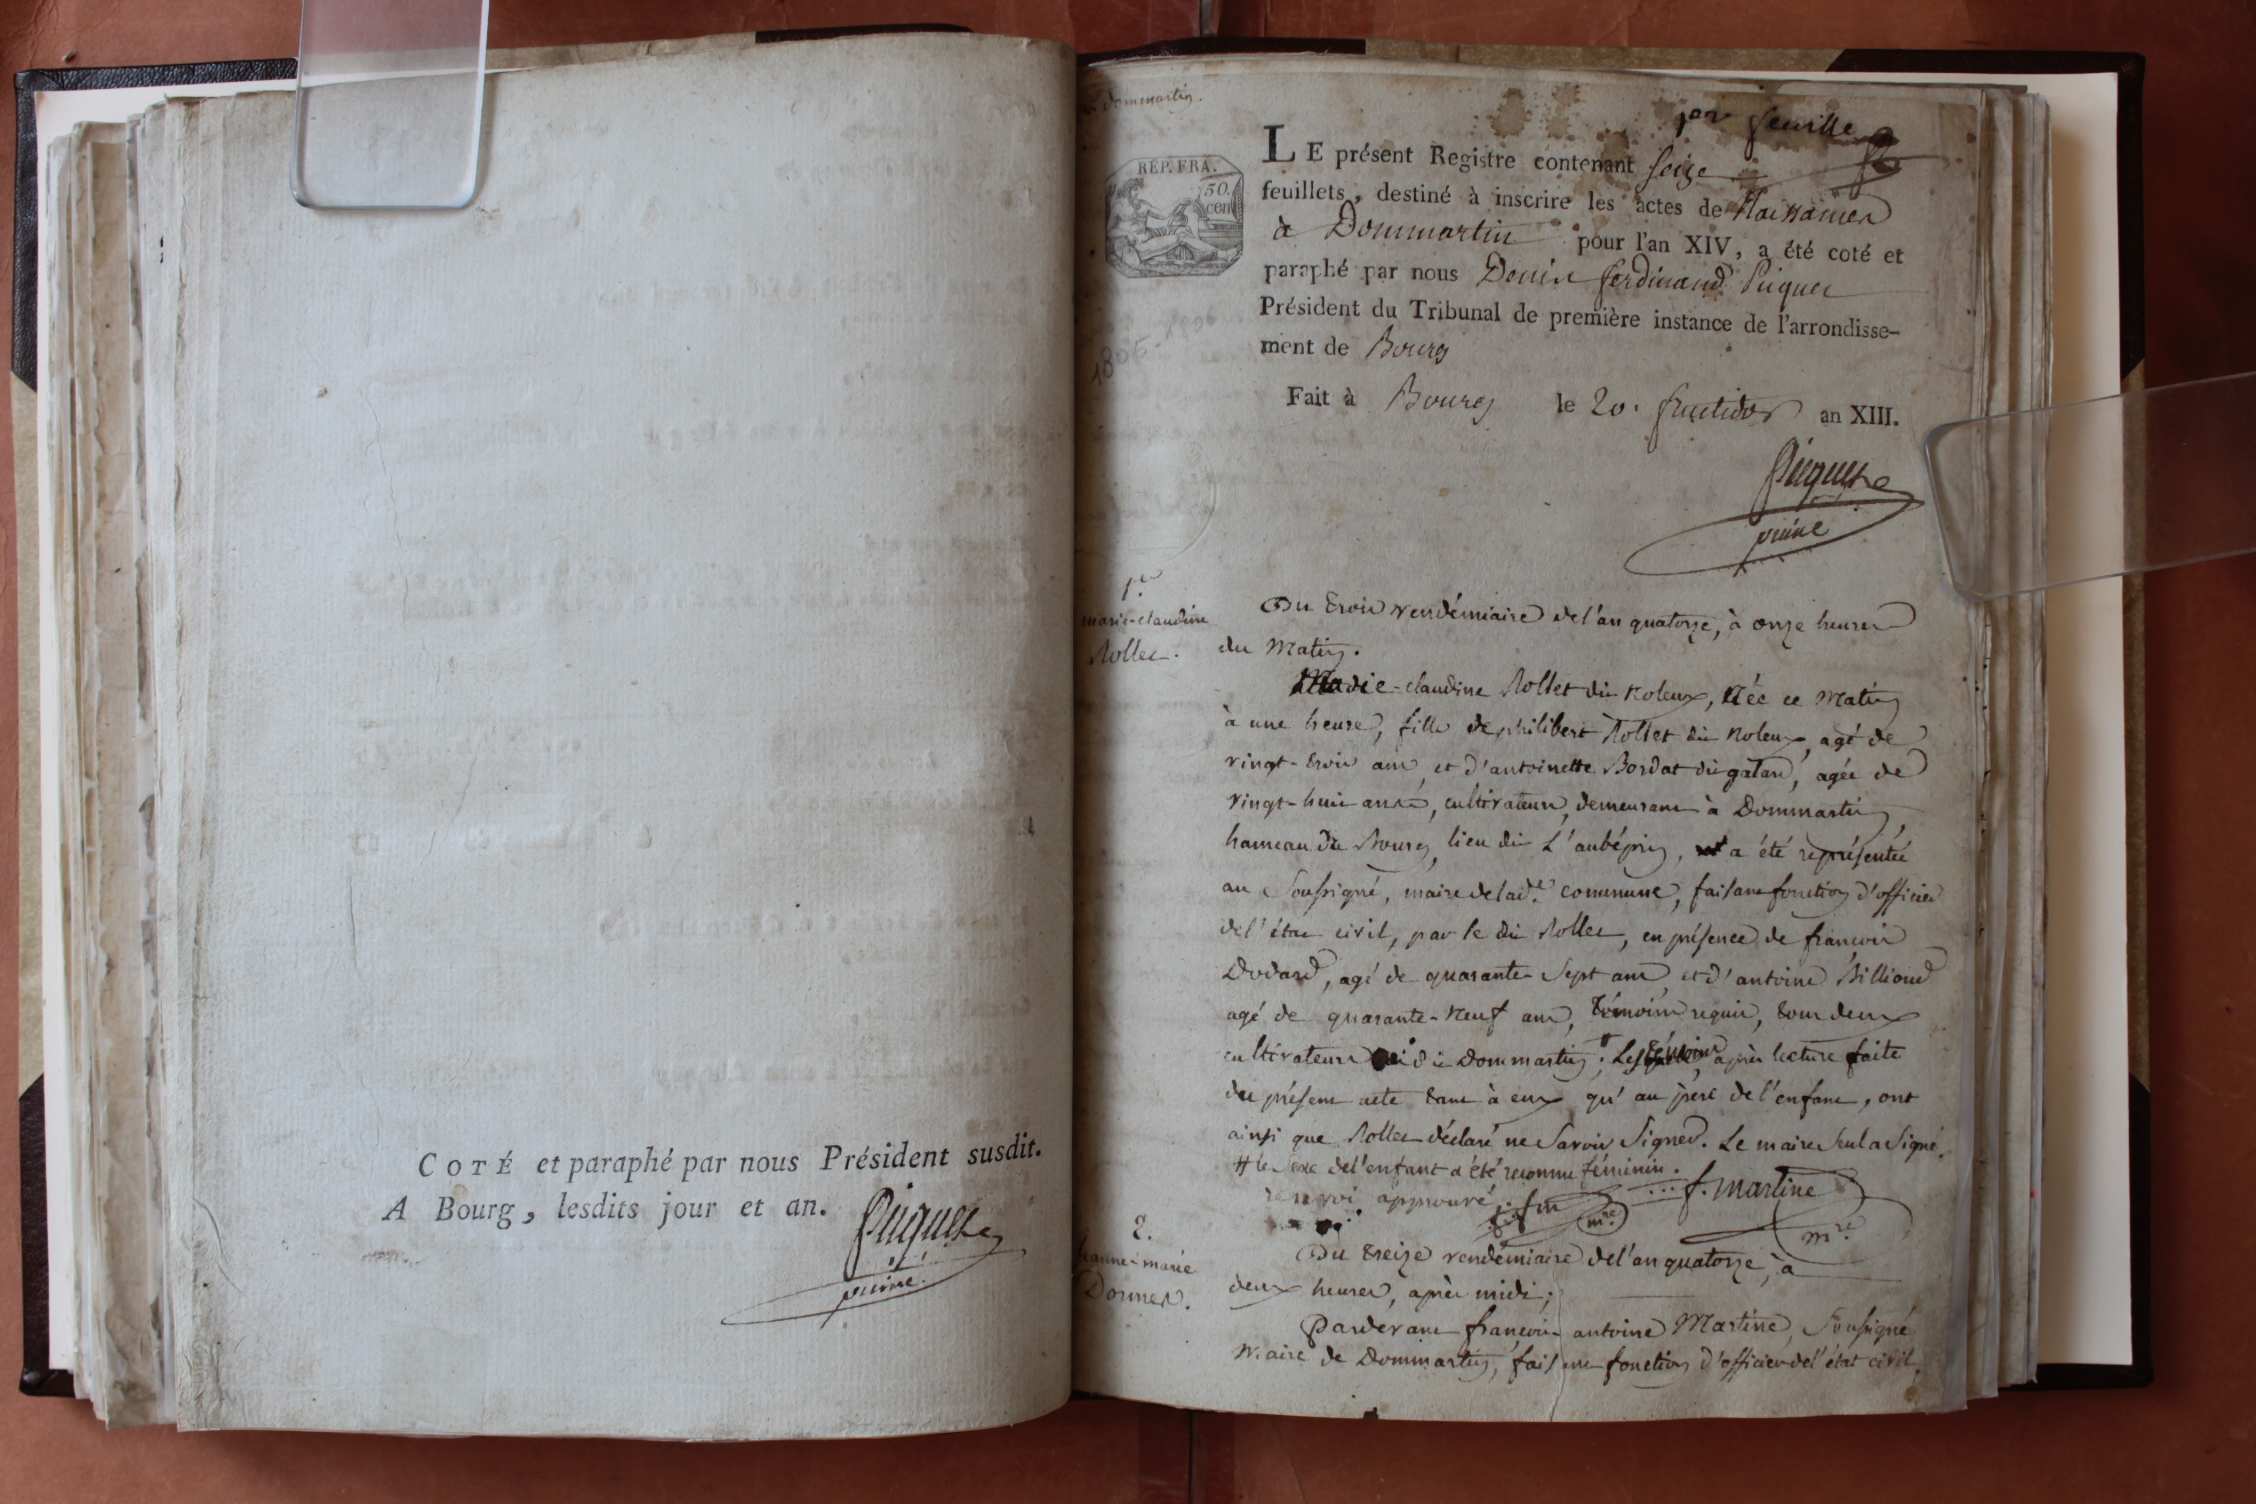 COTÉ et paraphé par nous Président susdit.
A Bourg, lesdits jour et an.
Dommartin.
per feuille
REP. FRA.
50.
cent
LE présent Registre contenant seize
feuillets, destiné à inscrire les actes de Naissances
à Dommartin pour l'an XIV, a été coté et
paraphé par nous Denis ferdinand
Président du Tribunal de première instance de l'arrondisse-
ment de Bourg
1805-1806
Fait à Bourg le 20. fructidor an XIII.
1.er
marie-claudine
Rollet.
Du trois vendémiaire de l'an quatorze, à onze heures
du matin.
Marie-claudine Rollet dit Noleux, Née ce matin
à une heure, fille de philibert Rollet dit Noleux, agé de
vingt-trois ans, et d'antoinette Bordat dit galand, agée de
vingt-huit ans, cultivateurs, demeurant à Dommartin,
hameau du Bourg, lieu dit L'aubépin, a été représentée
au soussigné, maire de lad.e commune, faisant fonction d'officier
de l'état civil, par le dit Rollet, en présence de françois
Dodard, agé de quarante-sept ans, et d'antoine Billioud
agé de quarante-neuf ans, témoins requis, tous deux
cultivateurs dudit Dommartin; # Les témoins, après lecture faite
du présent acte tant à eux qu'au père de l'enfant, ont
ainsi que Rollet déclaré ne savoir signer. Le maire seul a signé.
# le sexe de l'enfant a été reconnu féminin.
renvoi approuvé; fm mre
f. martine
mre
2.
Jeanne-marie
Donnet.
Du treize vendémiaire de l'an quatorze, à
deux heures, après midi;
Pardevant françois antoine Martine, soussigné
maire de Dommartin, faisant fonction d'officier de l'état civil,